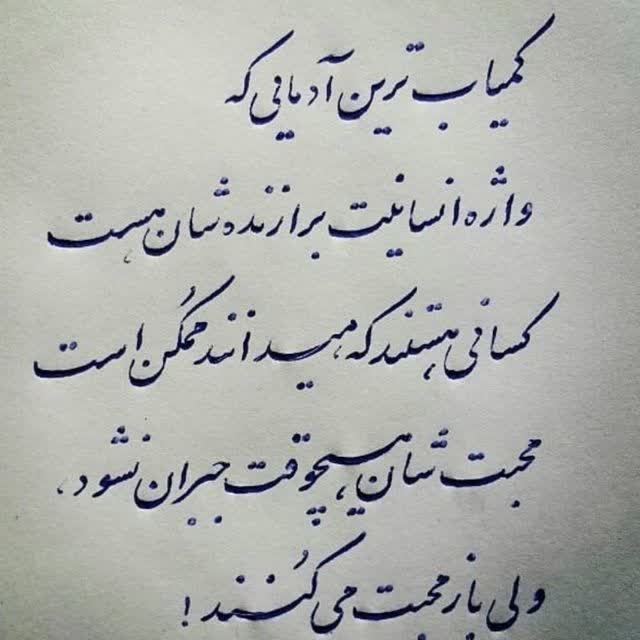 کمیاب ترین آدمایی که
واژه انسانیت برازنده شان هست
کسانی هستند که میدانند ممکن است
محبت شان هیچوقت جبران نشود،
ولی باز محبت می کُنند!